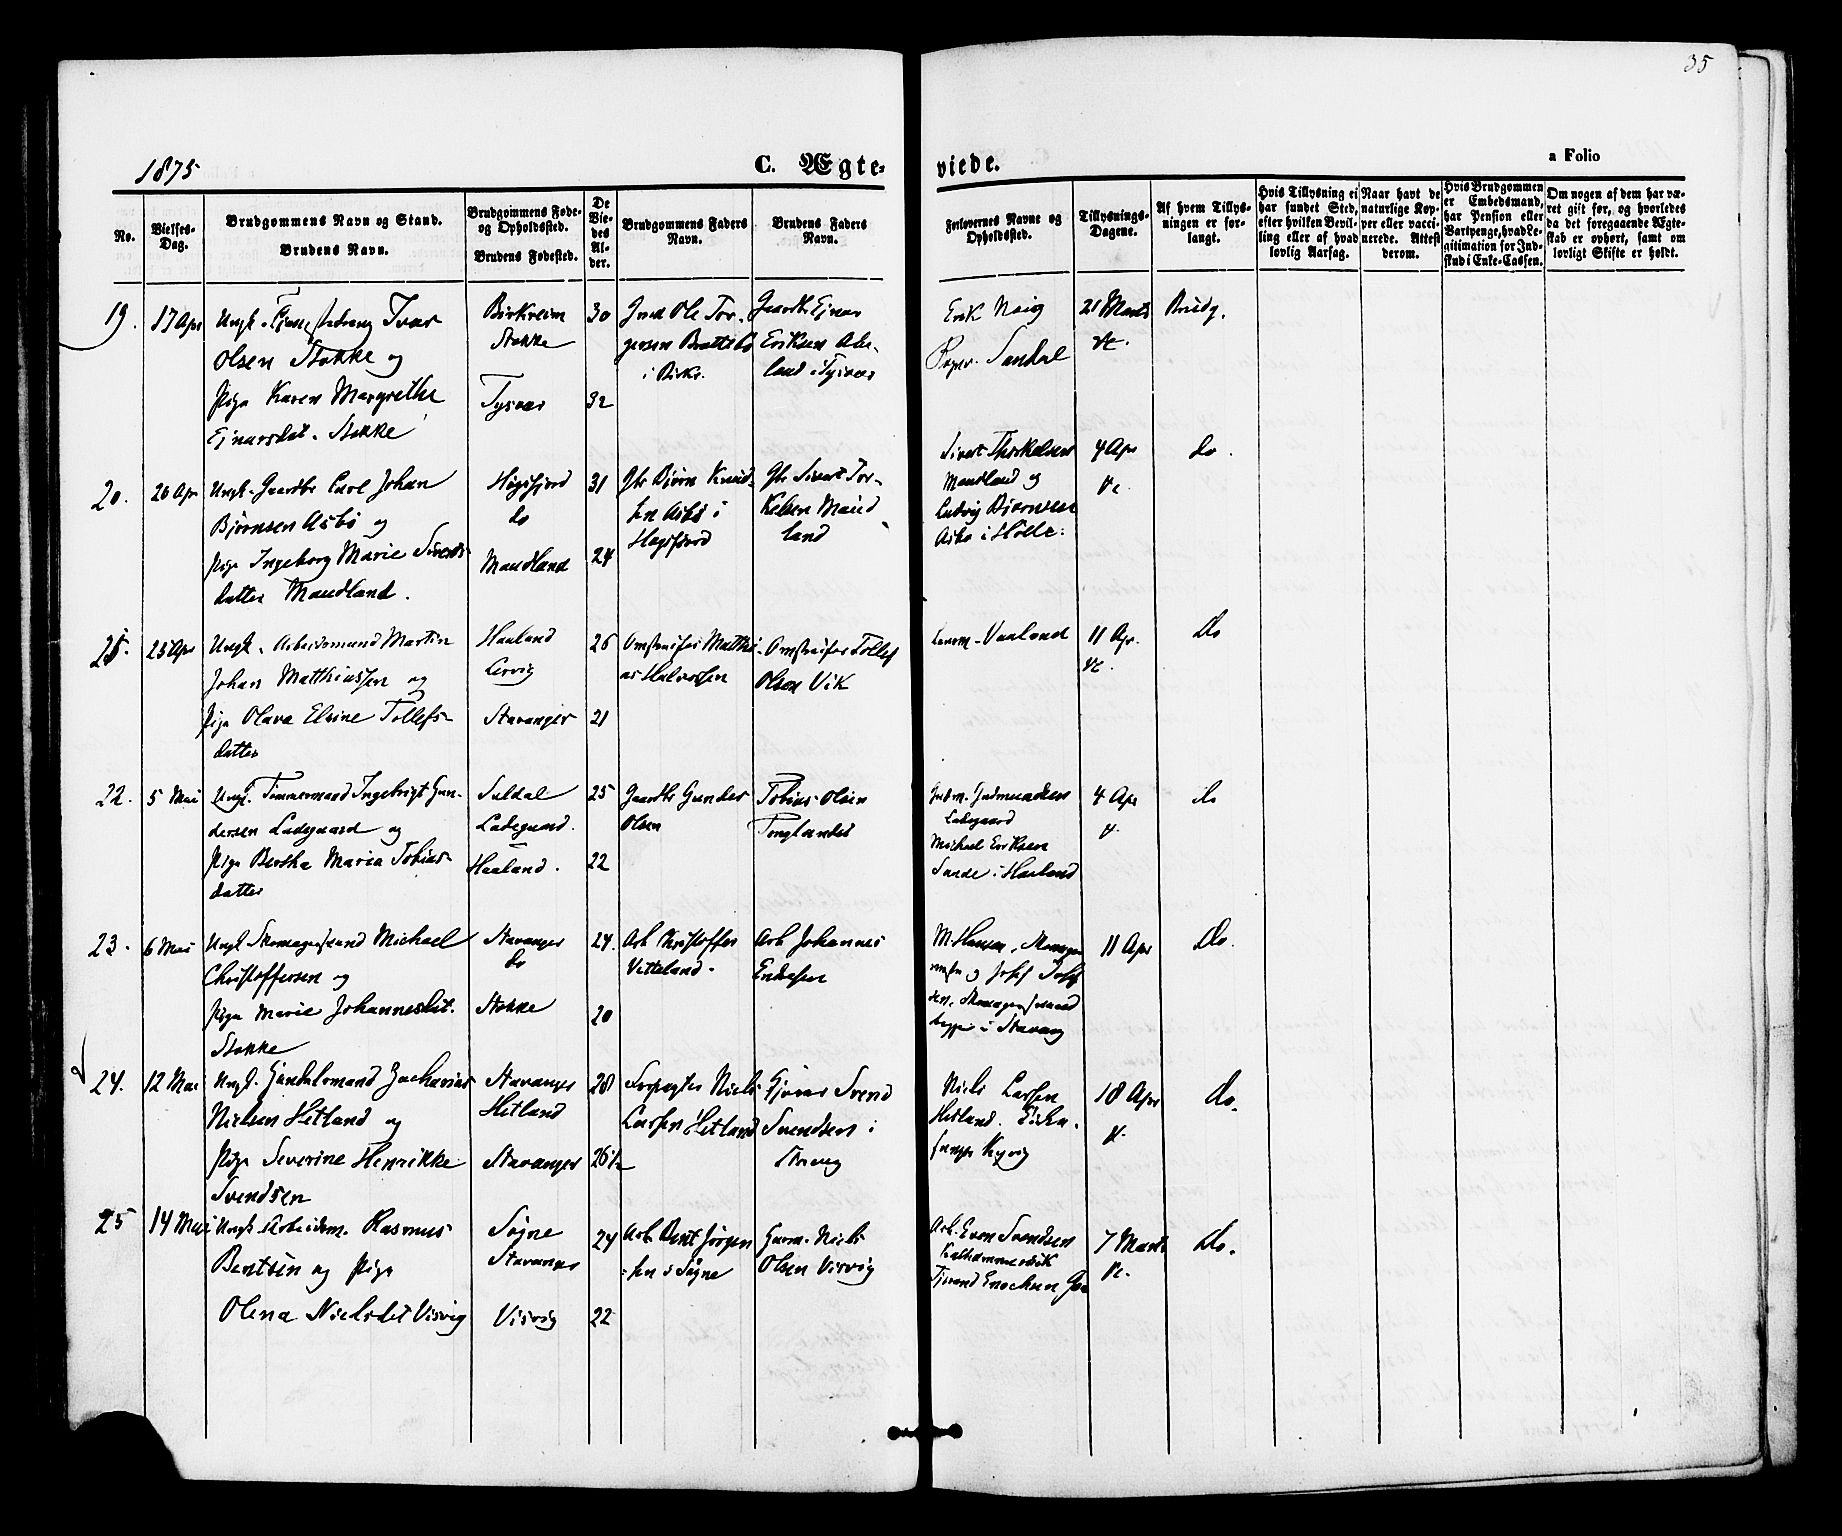 35
1875
C. Ægte-
viede.
a Folio
No.
Vielses-
Dag.
Brudgommens Navn og Stand.
Brudens Navn.
Brudgommens Føde-
og Opholdssted.
Brudens Fødested.
De
Vie-
des
Al-
der.
Brudgommens Faders
Navn.
Brudens Faders
Navn.
Forlovernes Navne og
Opholdssted.
Tillysnings-
Dagene.
Af hvem Tillys-
ningen er for-
langt.
Hvis Tillysning ei
har fundet Sted,
efter hvilken Bevil-
ling eller af hvad
lovlig Aarsag.
Naar havt de
naturlige Kop-
per eller vacci-
nerede. Attest
derom.
Hvis Brudgommen
er Embedsmand,
har Pension eller
Vartpenge, hvad Le-
gitimation for Ind-
skud i Enke-Cassen.
Om nogen af dem har væ-
ret gift før, og hvorledes
da det foregaaende Ægte-
skab er ophørt, samt om
lovligt Skifte er holdt.
19.
17 Apr
Ungk. Tjenestedreng Ivar
Olsen Stokke og
Pige Karen Margrethe
Ejnarsdat. Stokke
Birkreim
Stokke
Tysvær
30
32
Ole Tor-
gersen Bratteb
i Birkr.
Gaardb. Ejnar
Eriksen
land i Tysvær
Erik
Sandal
21 Marts
Brudg.
20.
20 Apr
Ungk. Gaardbr Carl Johan
Bjørnsen Asbø og
Pige Ingeborg Marie Siverts-
datter Maudland.
Høgsfjord
do
Maudland
31
24
Gbr Bjørn Knud-
sen Asbø i
Høgsfjord
Gbr Sivert Tor-
kelsen Maud
land
Sivert Thorkelsen
Maudland og
Ludvig Bjørnsen
Asbø i Hølle.
4 Apr
do.
21.
25 Apr
Ungk. Arbeidsmand Martin
Johan Matthiassen og
Pige Olava Elvine Tollefs-
datter
Haaland
Lervig
Stavanger
26
21
Omstreifer Matthi
as Halvorsen
Omstreifer Tollef
Olsen Vik
Vaaland
11 Apr.
Do
22.
5 Mai
Ungk. Timmermand Ingebrigt Gun-
dersen Ladegaard og
Pige Bertha Maria Tobias-
datter
Suldal
Ladegaard.
Haaland.
25
22
Gaardbr Gunder
Olsen
Tobias Olsen
Tonglandet
Gudm. Gudmundsen
Ladegaard
Michael Eriksen
Sunde i Haaland
4 Apr
do
23.
6 Mai
Ungk Skomagersvend Michael
Christoffersen og
Pige Marie Johannesdat.
Stokke
Stavanger
do
Stokke
24.
20
Arb Kristoffer
Vetteland.
Arb Johannes
M. Hansen, Skomager
og Josef
den, Skomagersvend
begge i Stavang
11 Apr
Do.
24.
12 Mai
Ungk. Handelsmand Zacharias
Nielsen Hetland og
Pige Severine Henrikke
Svendsen
Stavanger
Hetland
Stavanger
28
26½
Forpagter Niels
Larsen Hetland
Svend
Svendsen i
Stavang
Niels Larsen
Hetland.
18 Apr
Do.
25
14 Mai
Ungk. Arbeidsm. Rasmus
Bentsen og Pige
Olena Nielsdat Visvig
Søgne
Stavanger
Visvig
24
22
Arb. Bent Jørgen
sen i Søgne
Gaarm. Niels
Olsen Visvig
Arb. Even Svendsen
Kalhammervik
Tjerand Enochsen
7 Marts
Do.